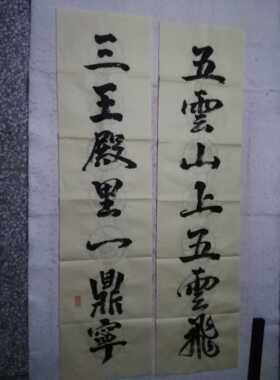 五雲山上五雲飛
三王殿里一鼎寧